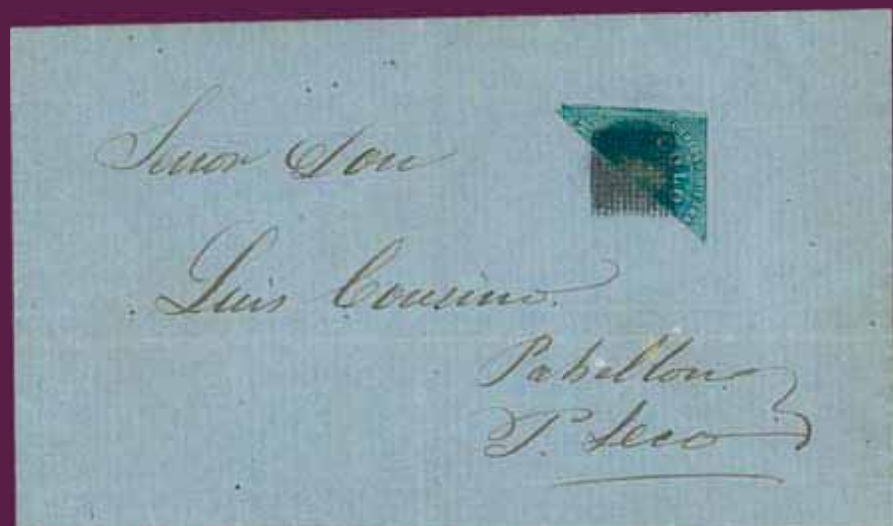 Señor Don
Luis Cousino.
Pabellon
P. Seco